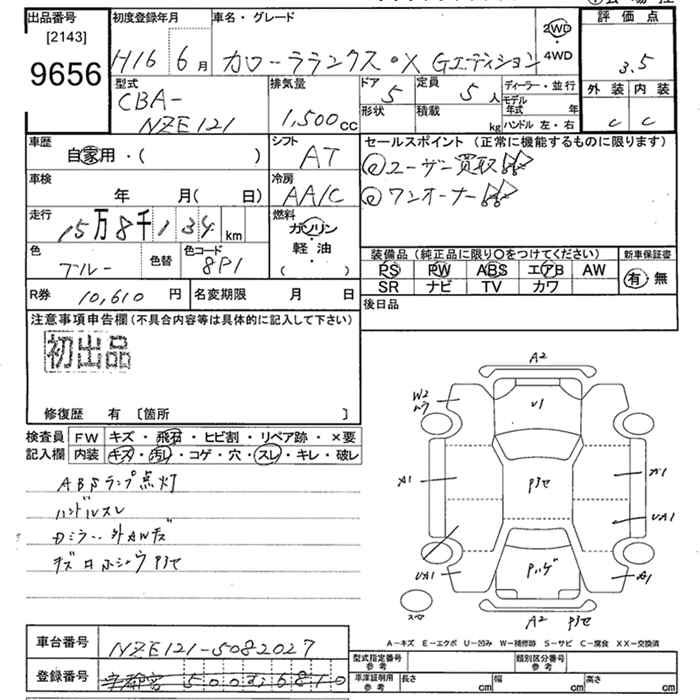 出品番号
[2143]
9656
初度登録年月
H16 6月
車名・グレード
カローラランクス・X Gエディション
2WD
・
4WD
評価点
3.5
外装 内装
C C
型式
CBA-
NZE121
排気量
1,500cc
ドア
5
定員
5人
形状
積載
kg
ディーラー・並行
モデル年式 年
ハンドル 左・右
車歴
自家用・( )
シフト
AT
車検
年 月( 日)
冷房
AA/C
走行
15万8千134km
燃料
ガソリン
軽油
( )
色
ブルー
色替
色コード
8P1
R券 10,610円
名変期限 月 日
セールスポイント (正常に機能するものに限ります)
ユーザー買取
ワンオーナー
装備品 (純正品に限り○をつけてください)
新車保証書
PS PW ABS エアB AW
SR ナビ TV カワ
有・無
後日品
注意事項申告欄(不具合内容等は具体的に記入して下さい)
初出品
修復歴 有 [箇所 ]
検査員
記入欄
FW キズ・飛石・ヒビ割・リペア跡・×要
内装 キズ・汚レ・コゲ・穴・スレ・キレ・破レ
ABSランプ点灯
ハンドルスレ
Dミラー外AWキズ
A2
W2
U1
A1
A1
UA1
UA1
A1
スペア
A2
A-キズ E-エクボ U-凹み W-補修跡 S-サビ C-腐食 XX-交換済
車台番号 NZE121-5082027
登録番号 宇都宮
型式指定番号
参考
類別区分番号
参考
車庫証明用
参考
長さ cm
幅 cm
高さ cm